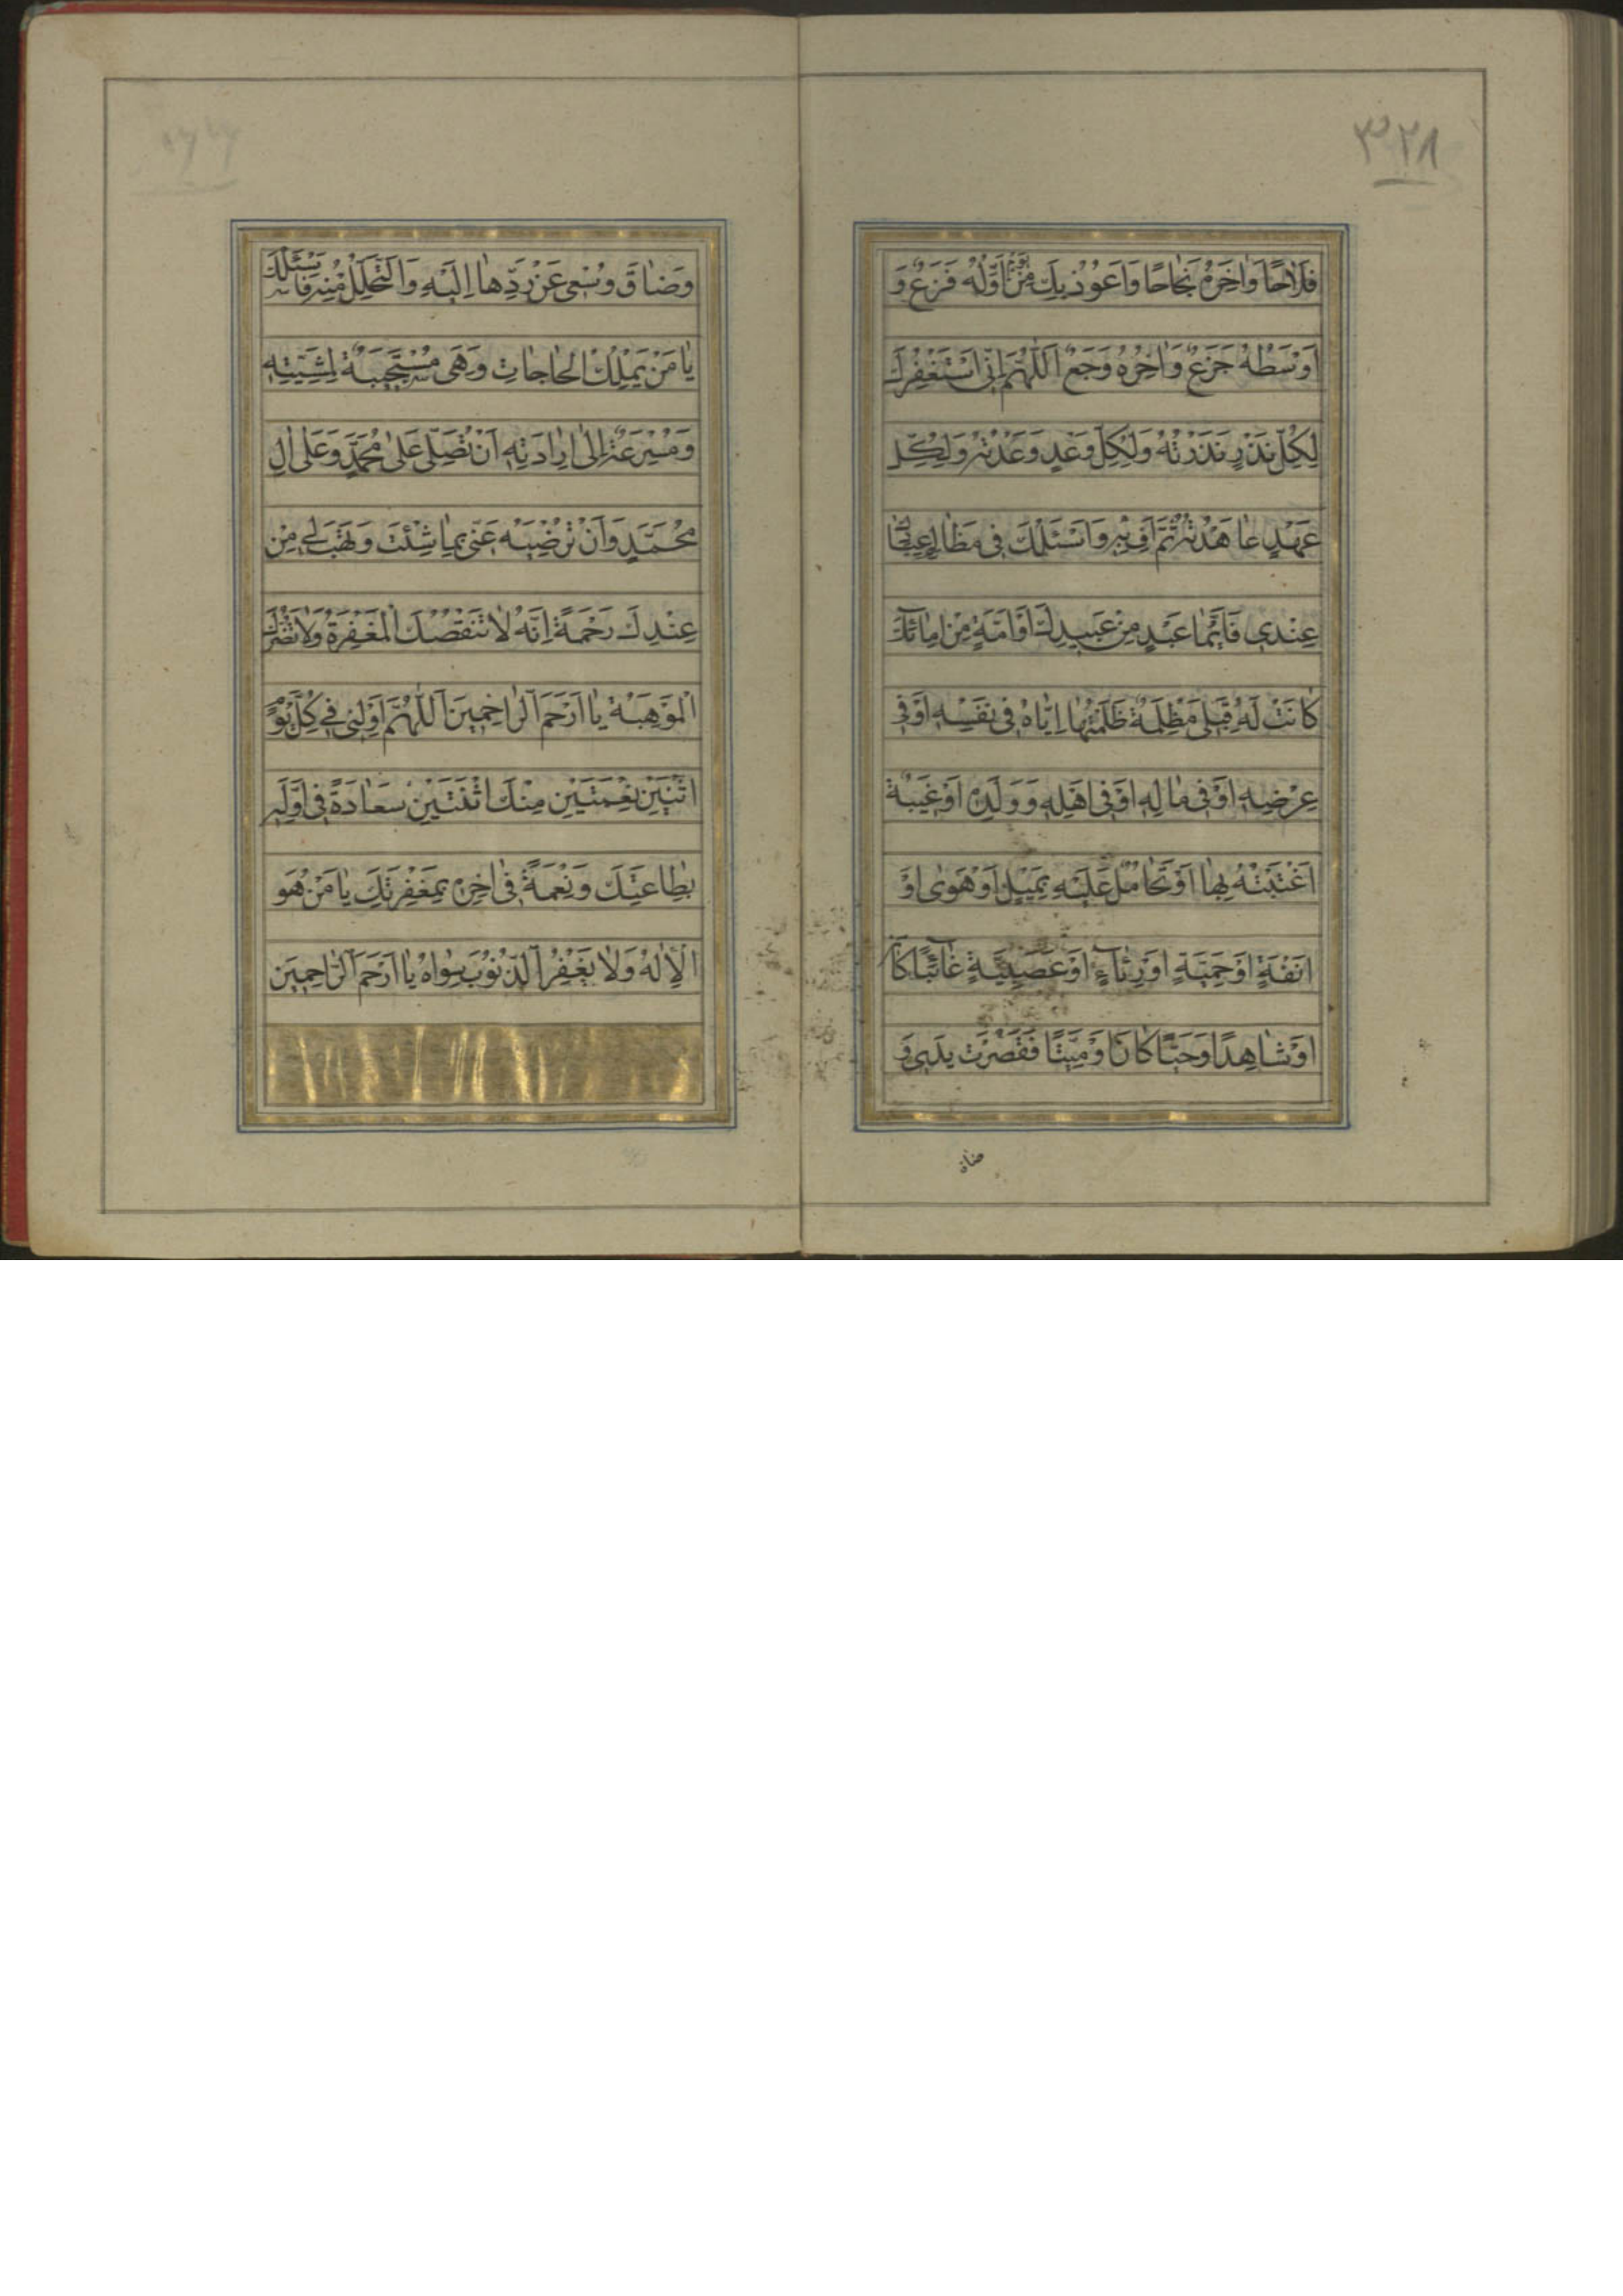 ٣٢٨
فَلَاحًا وَاٰخِرُهُ نَجَاحًا وَاَعُوْذُ بِكَ مِنْ يَوْمٍ اَوَّلُهُ فَزَعٌ وَ
اَوْسَطُهُ جَزَعٌ وَاٰخِرُهُ وَجَعٌ اَللّٰهُمَّ اِنّى اَسْتَغْفِرُكَ
لِكُلِّ نَذْرٍ نَذَرْتُهُ وَلِكُلِّ وَعْدٍ وَعَدْتُهُ وَلِكُلِّ
عَهْدٍ عاهَدْتُهُ ثُمَّ لَمْ اَفِ بِهِ وَاَسْئَلُكَ فى مَظالِمِ عِبادِكَ
عِنْدى فَاَيَّما عَبْدٍ مِنْ عَبيدِكَ اَوْ اَمَةٍ مِنْ اِمائِكَ
كانَتْ لَهُ قِبَلى مَظْلِمَةٌ ظَلَمْتُها اِيّاهُ فى نَفْسِهِ اَوْ فى
عِرْضِهِ اَوْ فى مالِهِ اَوْ فى اَهْلِهِ وَوَلَدِهِ اَوْ غيبَةٌ
اغْتَبْتُهُ بِها اَوْ تَحامُلٌ عَلَيْهِ بِمَيْلٍ اَوْ هَوىً اَوْ
اَنَفَةٍ اَوْ حَمِيَّةٍ اَوْ رِئآءٍ اَوْ عَصَبِيَّةٍ غائِبًا كانَ
اَوْ شاهِدًا وَحَيًّا كانَ اَوْ مَيِّتًا فَقَصُرَتْ يَدى وَ
ضاق
وَضاقَ وُسْعى عَنْ رَدِّها اِلَيْهِ وَالتَّحَلُّلِ مِنْهُ فَاَسْئَلُكَ
يا مَنْ يَمْلِكُ الْحاجاتِ وَهِىَ مُسْتَجيبَةٌ لِمَشِيَّتِهِ
وَمُسْرِعَةٌ اِلى اِرادَتِهِ اَنْ تُصَلِّىَ عَلى مُحَمَّدٍ وَعَلى الِ
مُحَمَّدٍ وَاَنْ تُرْضِيَهُ عَنّى بِما شِئْتَ وَتَهَبَ لى مِنْ
عِنْدِكَ رَحْمَةً اِنَّهُ لا تَنْقُصُكَ الْمَغْفِرَةُ وَلا تَضُرُّكَ
الْمَوْهِبَةُ يا اَرْحَمَ الرّاحِمينَ اَللّٰهُمَّ اَوْلِنى فى كُلِّ يَوْمِ
اثْنَيْنِ نِعْمَتَيْنِ مِنْكَ ثِنْتَيْنِ سَعادَةً فى اَوَّلِهِ
بِطاعَتِكَ وَنِعْمَةً فى اخِرِهِ بِمَغْفِرَتِكَ يا مَنْ هُوَ
الْاِلهُ وَلا يَغْفِرُ الذُّنُوبَ سِواهُ يا اَرْحَمَ الرّاحِمينَ